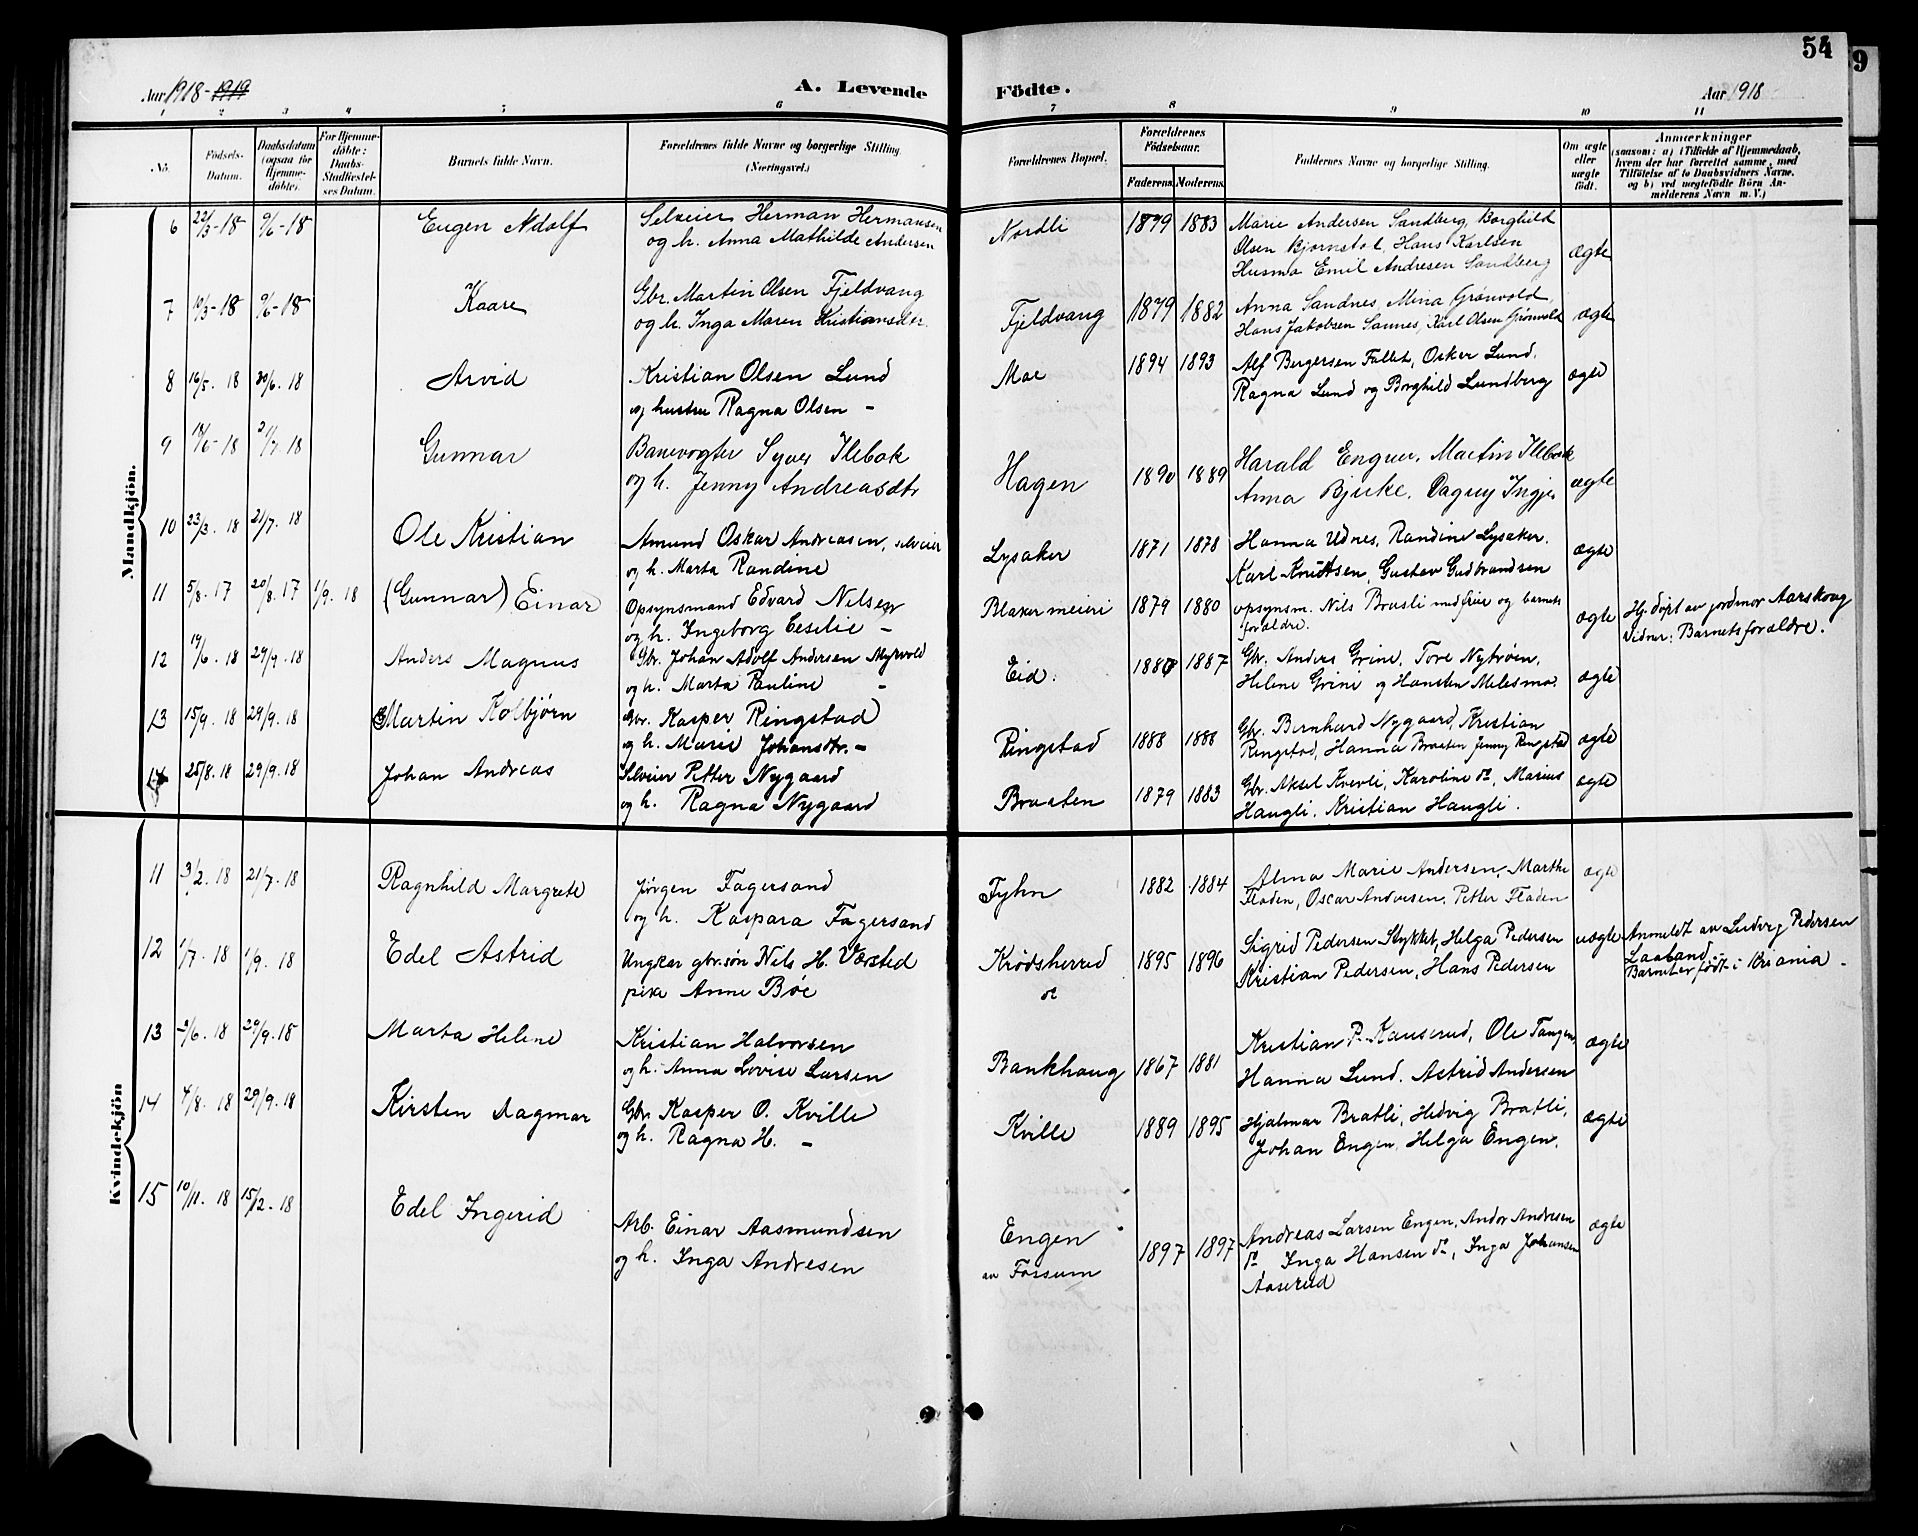 54
9
Aar 1918-1919
A. Levende Födte.
Aar 1918
1 2 3 4 5 6 7 8 9 10 11
No.
Födsels-Datum.
Daabsdatum (ogsaa for Hjemmedöbte).
For Hjemmedöbte: Daabs-Stadfæstelses Datum.
Barnets fulde Navn.
Forældrenes fulde Navne og borgerlige Stilling. (Næringsvei.)
Forældrenes Bopæl.
Forældrenes Födselsaar.
Faderens. Moderens.
Faddernes Navne og borgerlige Stilling.
Om ægte eller uægte födt.
Anmærkninger
(saasom: a) i Tilfælde af Hjemmedaab, hvem der har forrettet samme, med Tilföielse af to Daabsvidners Navne. og b) ved uægtefödte Börn Anmelderens Navn m. V.)
Mandkjön.
6 22/3-18 9/6-18 Eugen Adolf Selveier Herman Hermansen Nordli 1879 1883 Marie Andersen Sandberg, Borghild ægte
og h. Anna Mathilde Andersen Olsen Bjørnstol, Hans Karlsen
Husmo Emil Andresen Sandberg
7 19/3-18 9/6-18 Kaare Gbr. Martin Olsen Fjeldvang Fjeldvang 1879 1882 Anna Sandnes, Mina Grønvold, ægte
og h. Inga Maren Kristiansdtr. Hans Jakobsen Sannes, Karl Olsen Grønvold
8 16/5. 18 30/6. 18 Arvid Kristian Olsen Lund Moe 1894 1893 Alf Bergersen Fallet, Osker Lund. ægte
og hustru Ragna Olsen - Ragna Lund og Borghild Lundberg
9 18 21/7. 18 Gunnar Banevogter Syver Ilebæk Hagen 1890 1889 Harald Enguer, Martin Ilebæk ægte
og h. Jenny Andreasdtr Anna Bjerke, Dagny
10 23/3. 18 21/7. 18 Ole Kristian Amund Oskar Andreasen, selveier Lysaker 1871 1878 Hanna Udnes, Randine Lysaker. ægte
og h. Marta Randene Karl Knuttsen, Gustav Gudbrandsen
11 5/8. 17 20/8. 17 1/9. 18 (Gunnar) Einar Opsynsmand Edvard Nilsen Blaker meieri 1879 1880 opsynsm. Nils Brusli med frue og barnets forældre. ægte Hj. døpt av jordmor Aarskoug
og h. Ingeborg Cesilie - Vidner: Barnets forældre.
12 19/6. 18 29/9. 18 Anders Magnus Gbr. Johan Adolf Andersen Myrvold Eid. 1887 Gbr. Anders Grine, Tore Nybrøen, ægte
og h. Marta Pauline - Helene Grini og Hansten Melesmo.
13 15/9. 18 29/9. 18 Martin Kolbjørn Gbr. Kasper Ringstad Ringstad 1888 1888 Gbr. Bernhard Nygaard, Kristian ægte
og h. Marie Johansdtr. - Ringstad, Hanna Braaten Jenny Ringstad
14 25/8. 18 29/9. 18 Johan Andreas Selveier Petter Nygaard Braaten 1879 1883 Gbr. Aksel Kverli, Karoline do, Marius ægte
og h. Ragna Nygaard Haugli. Kristian Haugli.
Kvindekjön
11 3/2. 18 21/7. 18 Ragnhild Margrete Jørgen Fagersand Fyhn 1882 1884 Alma Marie Andersen, Marthe ægte
og h. Kaspara Fagersand Floden, Oscar Andresen, Petter Fladen
12 1/7. 18 1/9. 18 Edel Astrid Ungkar gbr.søn Nils H. Værsted Krødsherred 1895 1896 Sigrid Pedersen Stykket, Helga Pedersen uægte Anmeldt av Ludvig Pedersen
pike Anne Bøe Kristian Pedersen, Hans Pedersen Laaband.
Barnet er født i Kr.ania -
13 2/6. 18 29/9. 18 Marta Helene Kristian Halvorsen Bankhaug 1867 1881 Kristian P. Kauserud, Ole Tangen ægte
og h. Anna Lovise Larsen Hanna Lund. Astrid Andersen
14 4/8. 18 29/9. 18 Kirsten Dagmar Gbr. Kasper O. Kville Kville 1889 1895 Hjalmar Bratli, Hedvig Bratli, ægte
og h. Ragna H. - Johan Engen, Helga Engen.
15 10/11. 18 15/12. 18 Edel Ingerid Arb. Einar Aasmundsen Engen 1897 1897 Andreas Larsen Engen, Andor Andresen ægte
og h. Inga Andresen av Forsum do Inga Hansen do, Inga Johansen
Aaserud